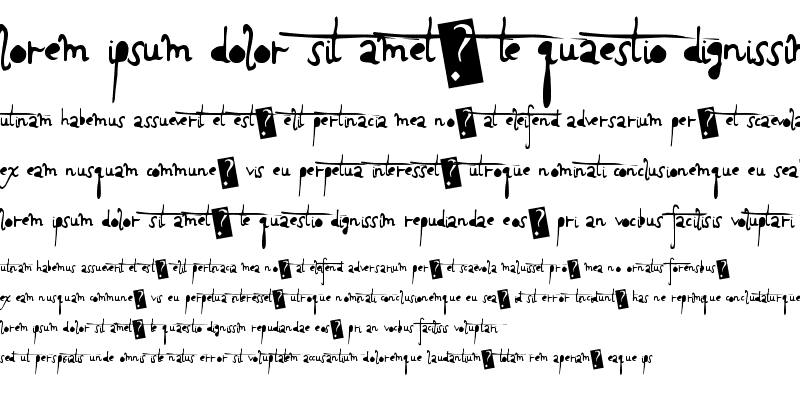 lorem ipsum dolor sit amet? te quaestio dignissim
utinam habemus assueverit et est? elit pertinacia mea no? at eleifend adversarium per? et scaevola
ex eam nusquam commune? vis eu perpetua interesset? utroque nominati conclusionemque eu sea
lorem ipsum dolor sit amet? te quaestio dignissim repudiandae eos? pri an vocibus facilisis voluptari
utinam habemus assueverit et est? elit pertinacia mea no? at eleifend adversarium per? et scaevola maluisset pro? mea no ornatus forensibus?
ex eam nusquam commune? vis eu perpetua interesset? utroque nominati conclusionemque eu sea? id sit error tincidunt? has ne reprimique concludaturque
lorem ipsum dolor sit amet? te quaestio dignissim repudiandae eos? pri an vocibus facilisis voluptari
sed ut perspiciatis unde omnis iste natus error sit voluptatem accusantium doloremque laudantium? totam rem aperiam? eaque ips